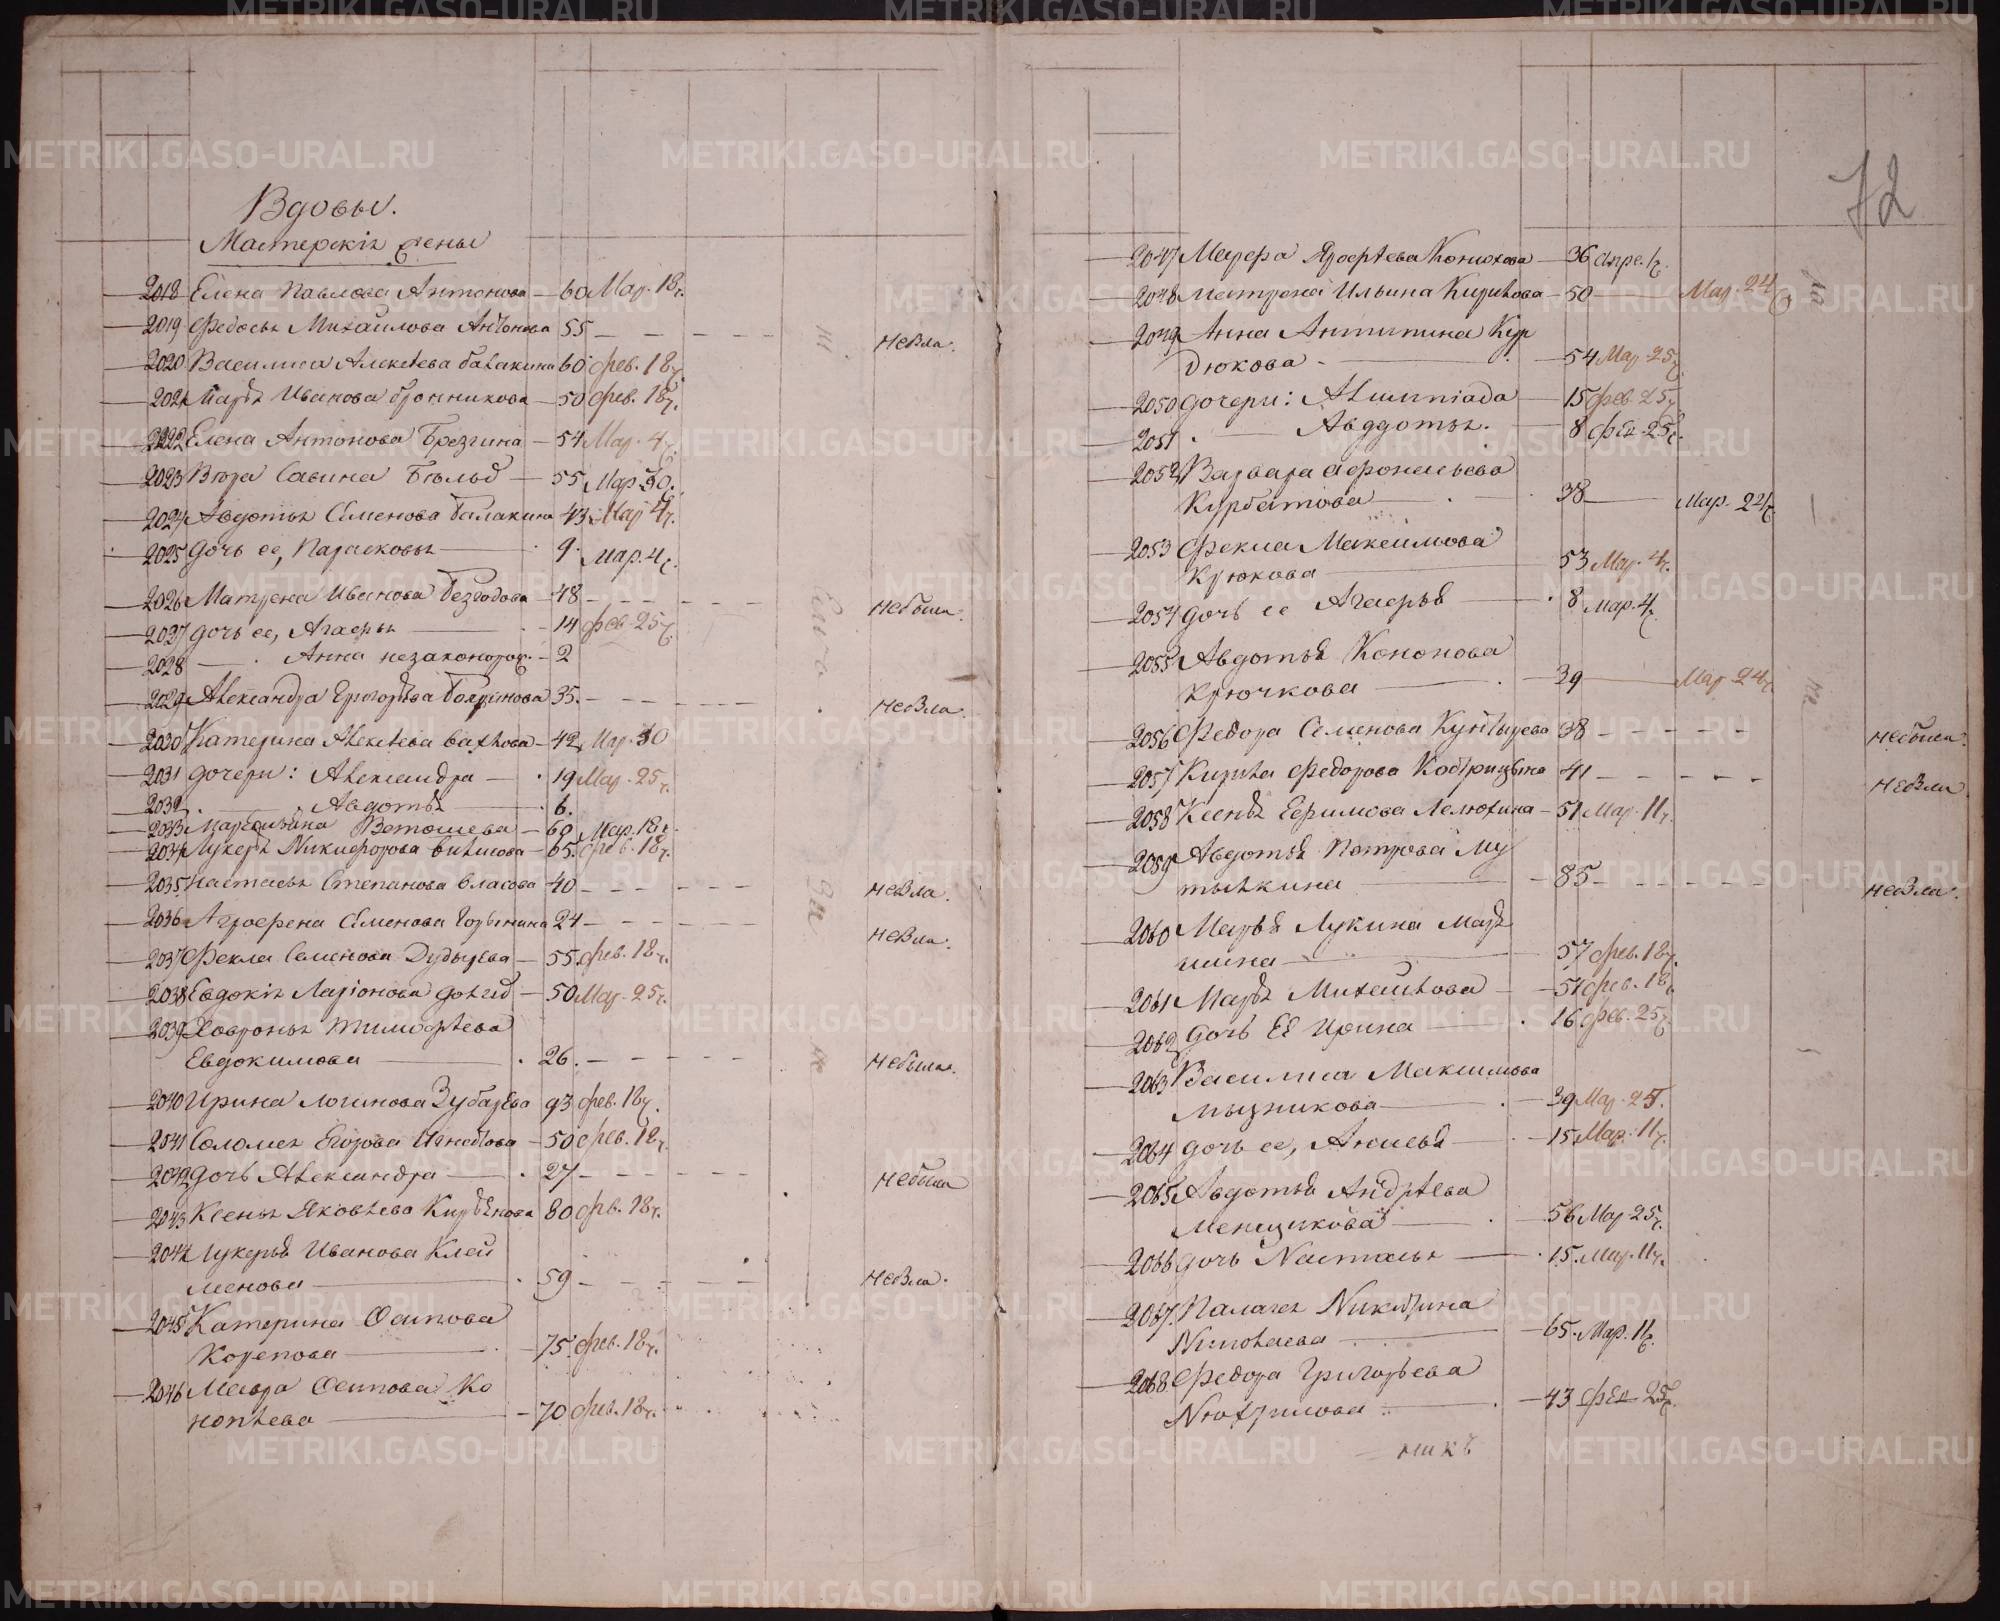 Вдовы.
Мастерскія жены
2018 Елена Павлова Антонова 60 Мар. 18
2019 Федосья Михайлова Антонова 55 не была.
2020 Василиса Алексѣева 60 фев. 18
2021 Марья Иванова Бронникова 50 фев. 18
2022 Елена Антонова Брезгина 54 Мар. 4
2023 Савина 55 Мар. 30.
2024 Авдотья Семенова Балакина 43 Мар 4
2025 дочь ее, Парасковья 9. Мар. 4
2026 Матрена Иванова Безгодова 48 не была.
2027 дочь ее, Агафья 14 фев. 25
2028 Анна незаконорож. 2
2029 Александра Григорьева 35. не была.
2030 Катерина Алексѣева 42 Мар. 30
2031 дочери: Александра 19 Мар. 25
2032 Авдотья 6.
2033 Ветошева 60 Мар. 18
2034 Лукерья Никифорова 65. фев. 18
2035 Настасья Степанова Власова 40 не была.
2036 Агрофена Семенова 24 не была.
2037 Фекла Семенова 55. фев. 18
2038 Евдокія Ларіонова 50 Мар. 25
2039 Хавронья Тимофѣева
Евдокимова 26. не была.
2040 Ирина Логинова 93 фев. 18
2041 Соломея Егорова Игнатова 50 фев. 18
2042 дочь Александра 27 не была
2043 Ксенья Яковлева 80 фев. 18
2044 Лукерья Иванова Клей
менова 59 не была.
2045 Катерина Осипова
Корепова 75. фев. 18
2046 Мавра Осипова Ко
ноплева 70 фев. 18
72
2047 Марфа Конюхова 36 Апре. 1
2048 Матрена Ильина Кирикова 50 Мар. 24
2049 Анна Антипина Кур
дюкова 54 Мар. 25
2050 дочери: Алимпіада 15 фев. 25
2051 Авдотья. 8 фев. 25
2052 Варвара Афонасьева
Курбатова 38 Мар. 24
2053 Фекла Максимова
Крюкова 53 Мар. 4
2054 дочь ее Агафья 8 Мар. 4
2055 Авдотья Кононова
Крючкова 39 Мар 24
2056 Федора Семенова 38 не была.
2057 Федорова 41 не была
2058 Ксенья Ефимова Лелюхина 51 Мар. 11
2059 Авдотья Петрова Му
тылкина 85 не была.
2060 Марья Лукина Марь
шина 57 фев. 18
2061 Марья Михайлова 51 фев. 18
2062 дочь Её Ирина 16 фев. 25
2063 Василиса Максимова
Мызникова 39 Мар. 25.
2064 дочь ее, Анисья 15 Мар. 11
2065 Авдотья Андрѣева
Меньщикова 56 Мар 25
2066 дочь Настасья 15. Мар. 11
2067. Палагея Никитина
Николаева 65. Мар. 11
2068. Федора Григорьева
43 фев 25
никъ